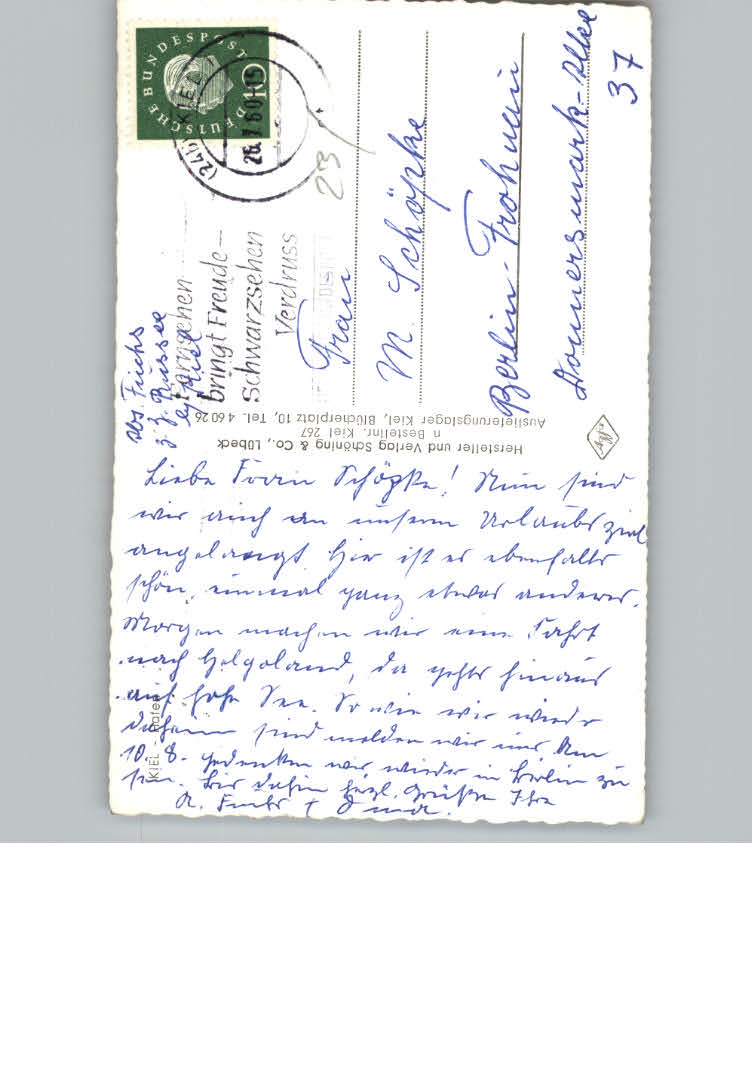 DEUTSCHE BUNDESPOST
10
(24b) KIEL
26.7.60-15
23
Fernsehen
bringt Freude—
Schwarzsehen
Verdruss
Abs. Fuchs
z. Z. Russee
b/ Kiel
Frau
M. Schöpke
Berlin-Frohnau
Donnersmark-Allee
37
Hersteller und Verlag Schöning & Co., Lübeck
n Bestellnr. Kiel 267
Auslieferungslager Kiel, Blücherplatz 10, Tel. 4 60 26
Agfa
KIEL - Hafen
Liebe Frau Schöpke! Nun sind
wir auch an unserm Urlaubsziel
angelangt. Hier ist es ebenfalls
schön, einmal ganz etwas anderes.
Morgen machen wir eine Fahrt
nach Helgoland, da gehts hinaus
auf hohe See. Sowie wir wieder
daheim sind melden wir uns. Am
10. 8. gedenken wir wieder in Berlin zu
sein. Bis dahin herzl. Grüße Ihre
R. Fuchs +